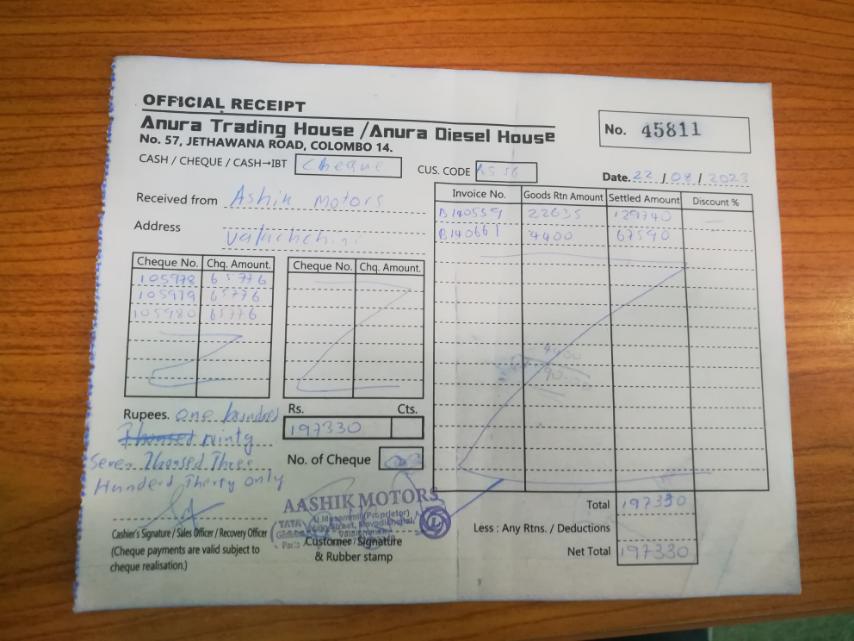 OFFICIAL RECEIPT
Anura Trading House /Anura Diesel House
No. 57, JETHAWANA ROAD, COLOMBO 14.
No. 45811
CASH / CHEQUE / CASH→IBT Cheque
CUS. CODE
Date. 22 / 08 / 2023
Received from Ashik Motors
Address
Invoice No. Goods Rtn Amount Settled Amount Discount %
B140559 22635 129740
B140661 4400 67590
Cheque No. Chq. Amount. Cheque No. Chq. Amount.
105978 65776
105979 65776
105980 65776
Rupees. one hundred
Thoused ninty
Seven Thoused Three
Hunderd Therty only
Rs. Cts.
197330
No. of Cheque
AASHIK MOTORS
(Proprietor)
TATA
Cashier's Signature / Sales Officer / Recovery Officer
(Cheque payments are valid subject to
cheque realisation.)
Customer Signature
& Rubber stamp
Total 197330
Less : Any Rtns. / Deductions
Net Total 197330